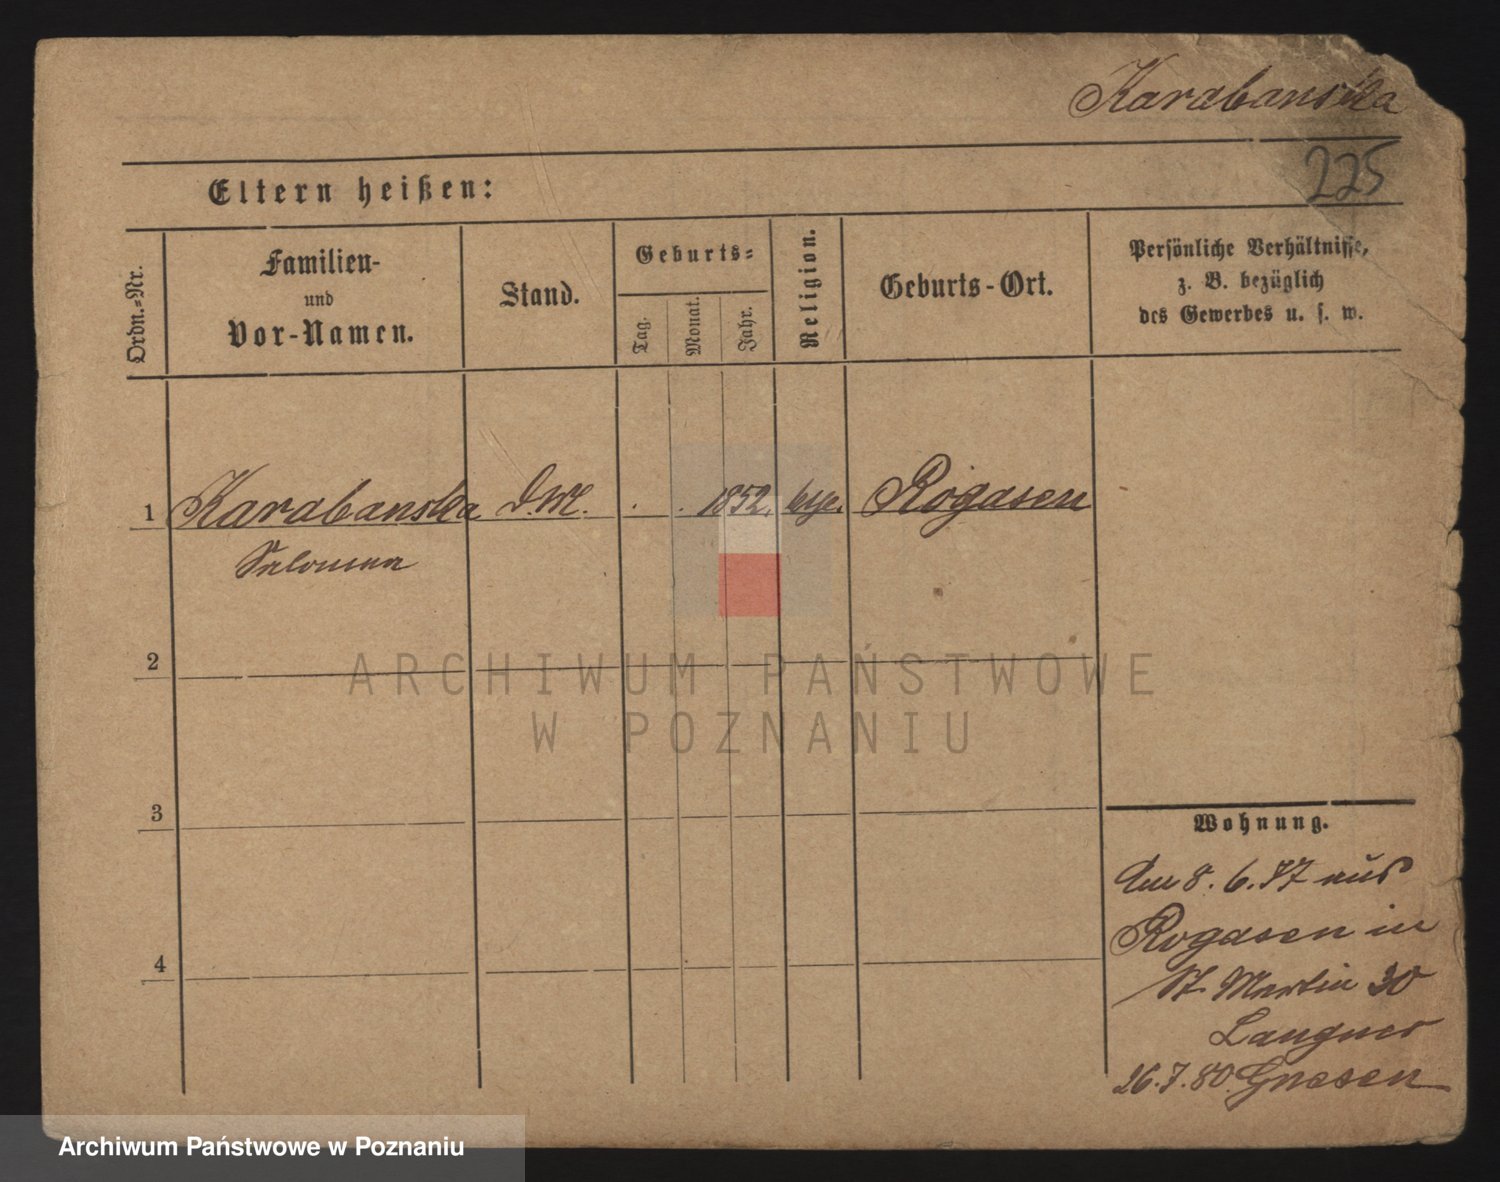 Karabanska
225
Eltern heißen:
Ordn.-Nr.
Familien-
und
Vor-Namen.
Stand.
Geburts-
Tag.
Monat.
Jahr.
Religion.
Geburts-Ort.
Persönliche Verhältnisse,
z. B. bezüglich
des Gewerbes u. s. w.
1 Karabanska . . 1852. Rogasen
Salomea
2
3
4
Wohnung.
Am 8. 6. 77 aus
Rogasen in
St. Martin 30
Langner
26. 7. 80. Gnesen
ARCHIWUM PAŃSTWOWE
W POZNANIU
Archiwum Państwowe w Poznaniu